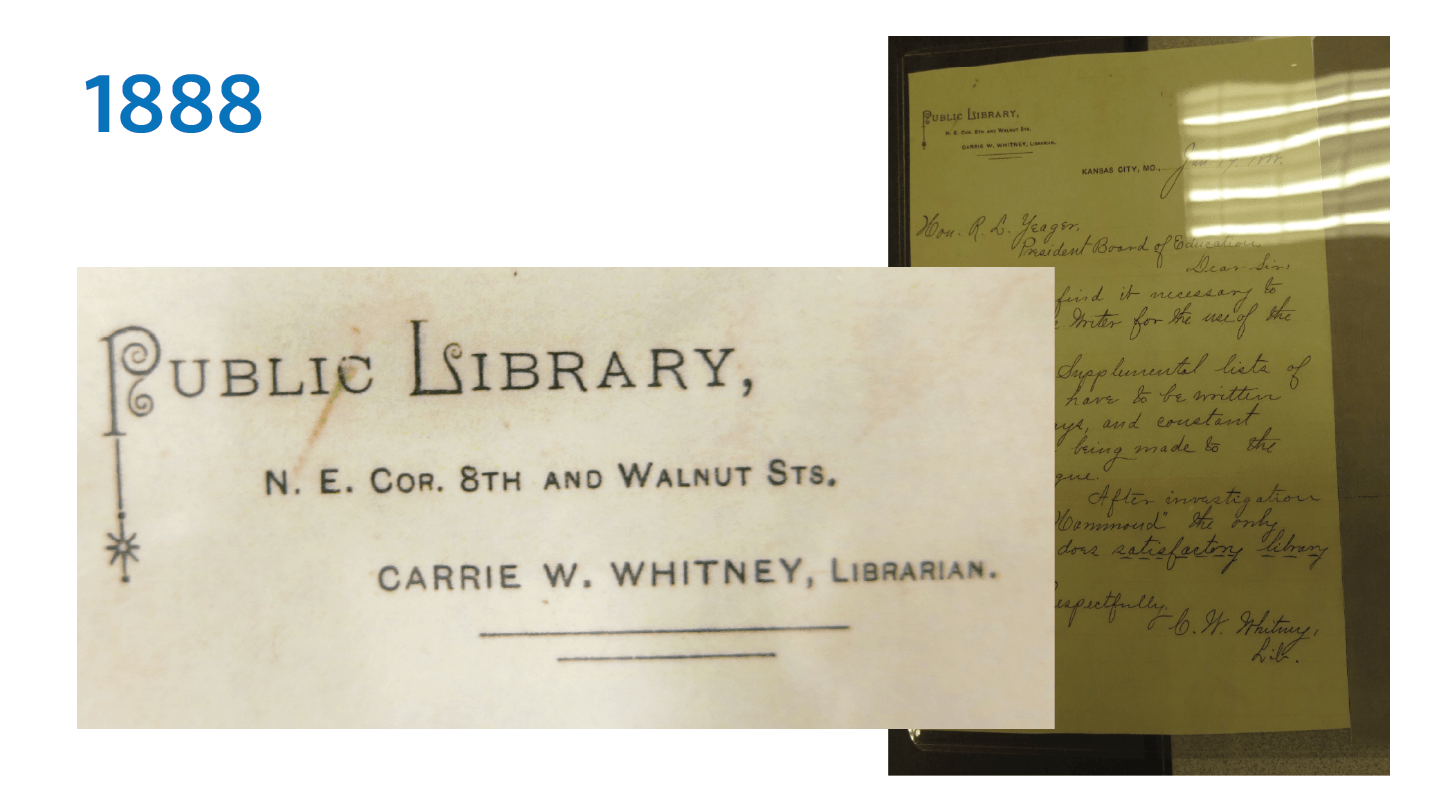 1888
PUBLIC LIBRARY,
N. E. COR. 8TH AND WALNUT STS.
CARRIE W. WHITNEY, LIBRARIAN.
PUBLIC LIBRARY,
N. E. COR. 8TH AND WALNUT STS.
CARRIE W. WHITNEY, LIBRARIAN.
KANSAS CITY, MO., Jan
Hon. R. L. Yeager,
President Board of Education,
Dear Sir:
find it necessary to
Writer for the use of the
Supplemental lists of
have to be written
and constant
being made to the
After investigation
"Hammond" the only
does satisfactory library
C. W. Whitney,
Lib.